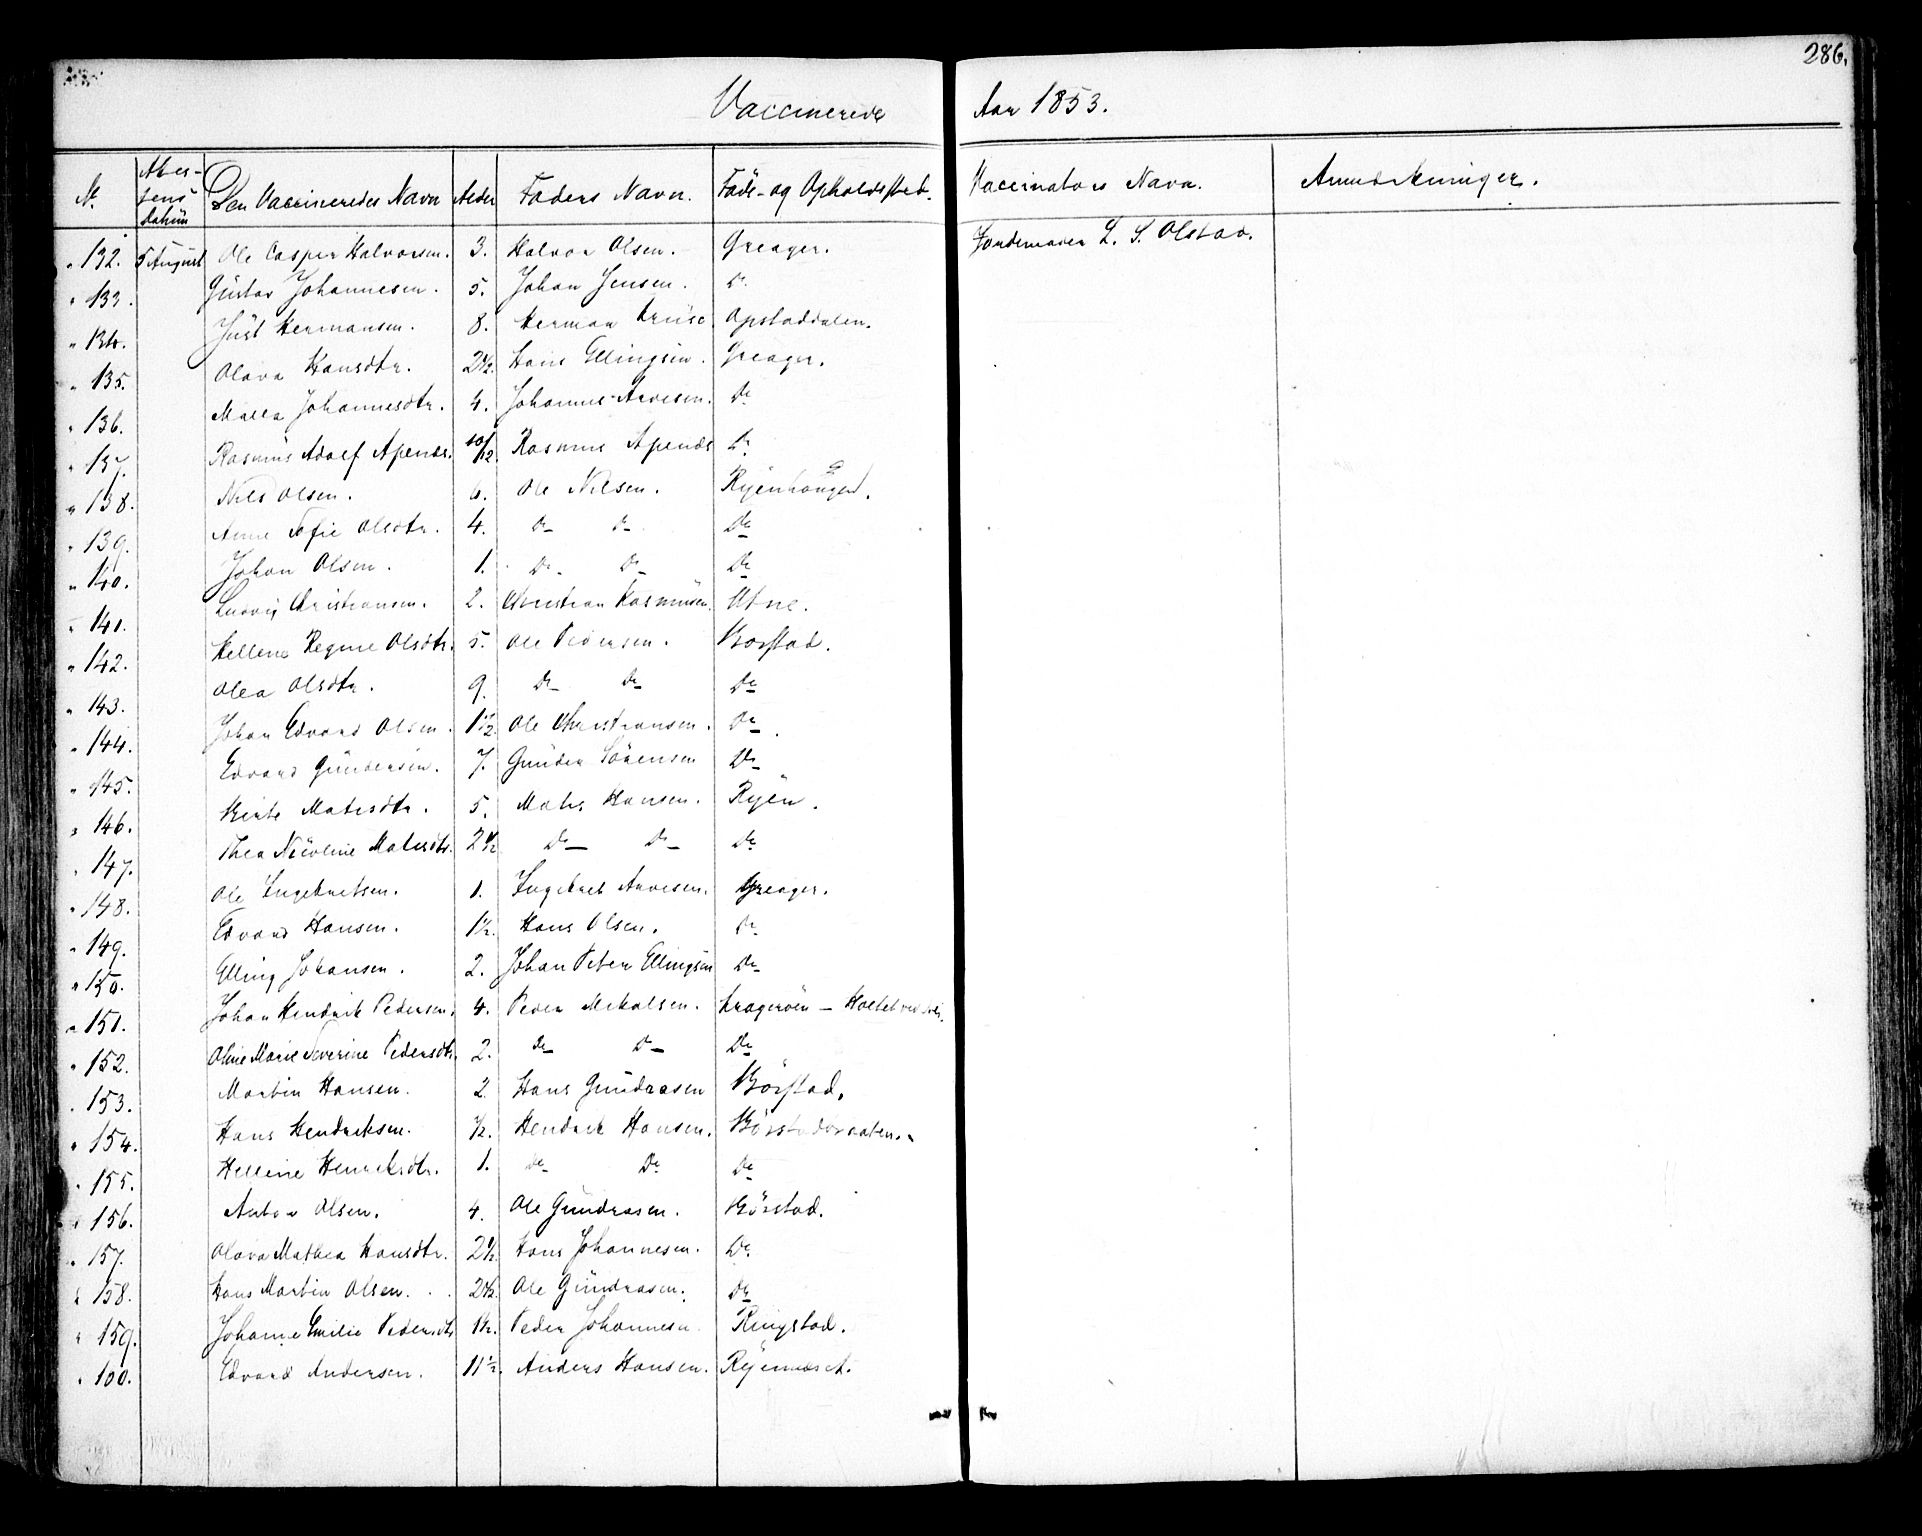 286.
Vaccinerede Aar 1853.
N. Attestens Datum Den Vaccineredes Navn Alder Faders Navn. Føde- og Opholdssted. Vaccinators Navn. Anmærkninger.
" 132. 5 August Ole Casper Halvorsen. 3. Halvor Olsen. Greager. Jordemoder L. S. Olstad.
" 133. Gustav Johannesen. 5. Johan Jensen. Do
" 134. Just Hermansen. 8. Herman Kruse Opstaddalen.
" 135. Olava Hansdtr. 2 1/2. Hans Ellingsen. Greager.
" 136. Maren Johannesdtr. 4. Johannes Arvesen. Do
" 137. Rasmus Adolf Apenæs. 10/12. Rasmus Apenæs Do
" 138. Nils Olsen. 6. Ole Nilsen. Ryenhougen.
" 139. Anne Sofie Olsdtr. 4. Do Do Do
" 140. Johan Olsen. 1. Do Do Do
" 141. Ludvig Christiansen. 2. Christian Rasmusen.
" 142. Hellene Regine Olsdtr. 5. Ole Pedersen. Borstad.
" 143. Olea Olsdtr. 9. Do Do Do
" 144. Johan Edvard Olsen. 1 1/2 Ole Christiansen. Do
" 145. Edvard Gundersen. 7. Gunder Sörensen Do
" 146. Berte Matisdtr. 5. Matis Hansen. Ryen.
" 147. Thea Nicoline Matisdtr. 2 1/2 Do Do Do
" 148. Ole Ingebretsen. 1. Ingebret Arvesen. Greager.
" 149. Edvard Hansen. 1 1/2. Hans Olsen. Do
" 150. Elling Johansen. 2. Johan Peter Ellingsen Do
" 151. Johan Hendrik Pedersen. 4. Peder Mikalsen. Kragerøen -
" 152. Oline Marie Severine Pedersdtr. 2. Do Do Do
" 153. Martin Hansen. 2. Hans Gundersen Börstad.
" 154. Hans Hendriksen. 1/2. Hendrik Hansen.
" 155. Hellene Henriksdtr. 1. Do Do Do
" 156. Anton Olsen. 4. Ole Gundersen. Börstad.
" 157. Olava Mathea Hansdtr. 2 1/2 Hans Johannesen. Do
" 158. Hans Martin Olsen. 2 1/2 Ole Gundersen. Do
" 159. Johanne Emilie Pedersdtr 1 1/2. Peder Johannesen Ringstad.
" 160. Edvard Andersen. 11 1/2. Anders Hansen.